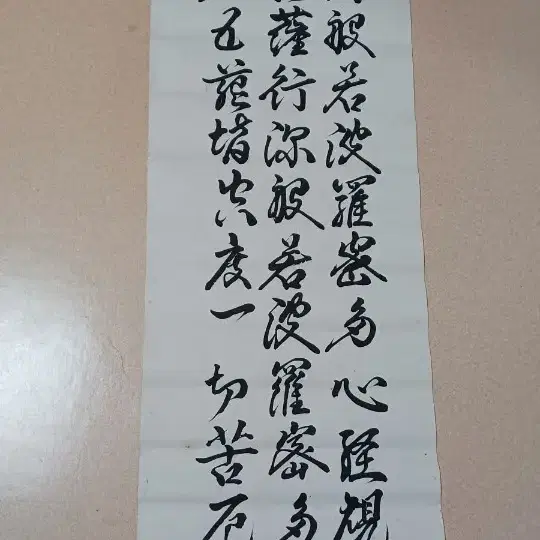 般若波羅密多心経観
薩行深般若波羅密多
五蘊皆空度一切苦厄